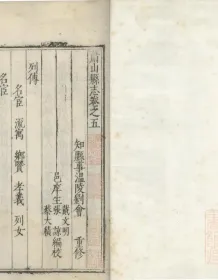 蕭山縣志卷之五
知縣事溫陵劉會 重修
戴文明
邑庠生張諒編校
蔡大績
列傳
名宦 流寓 鄉賢 孝義 列女
名宦